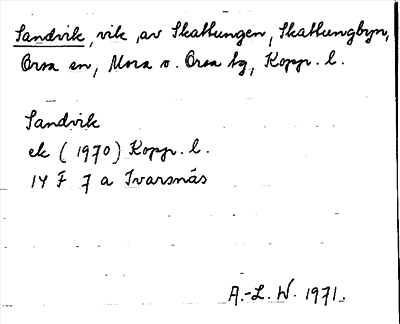 Sandvik, vik, av Skattungen, Skattungbyn,
Orsa sn, Mora o. Orsa tg, Kopp. l.
Sandvik
ek (1970) Kopp. l.
14 F 7 a Ivarsnäs
A.-L. W. 1971.